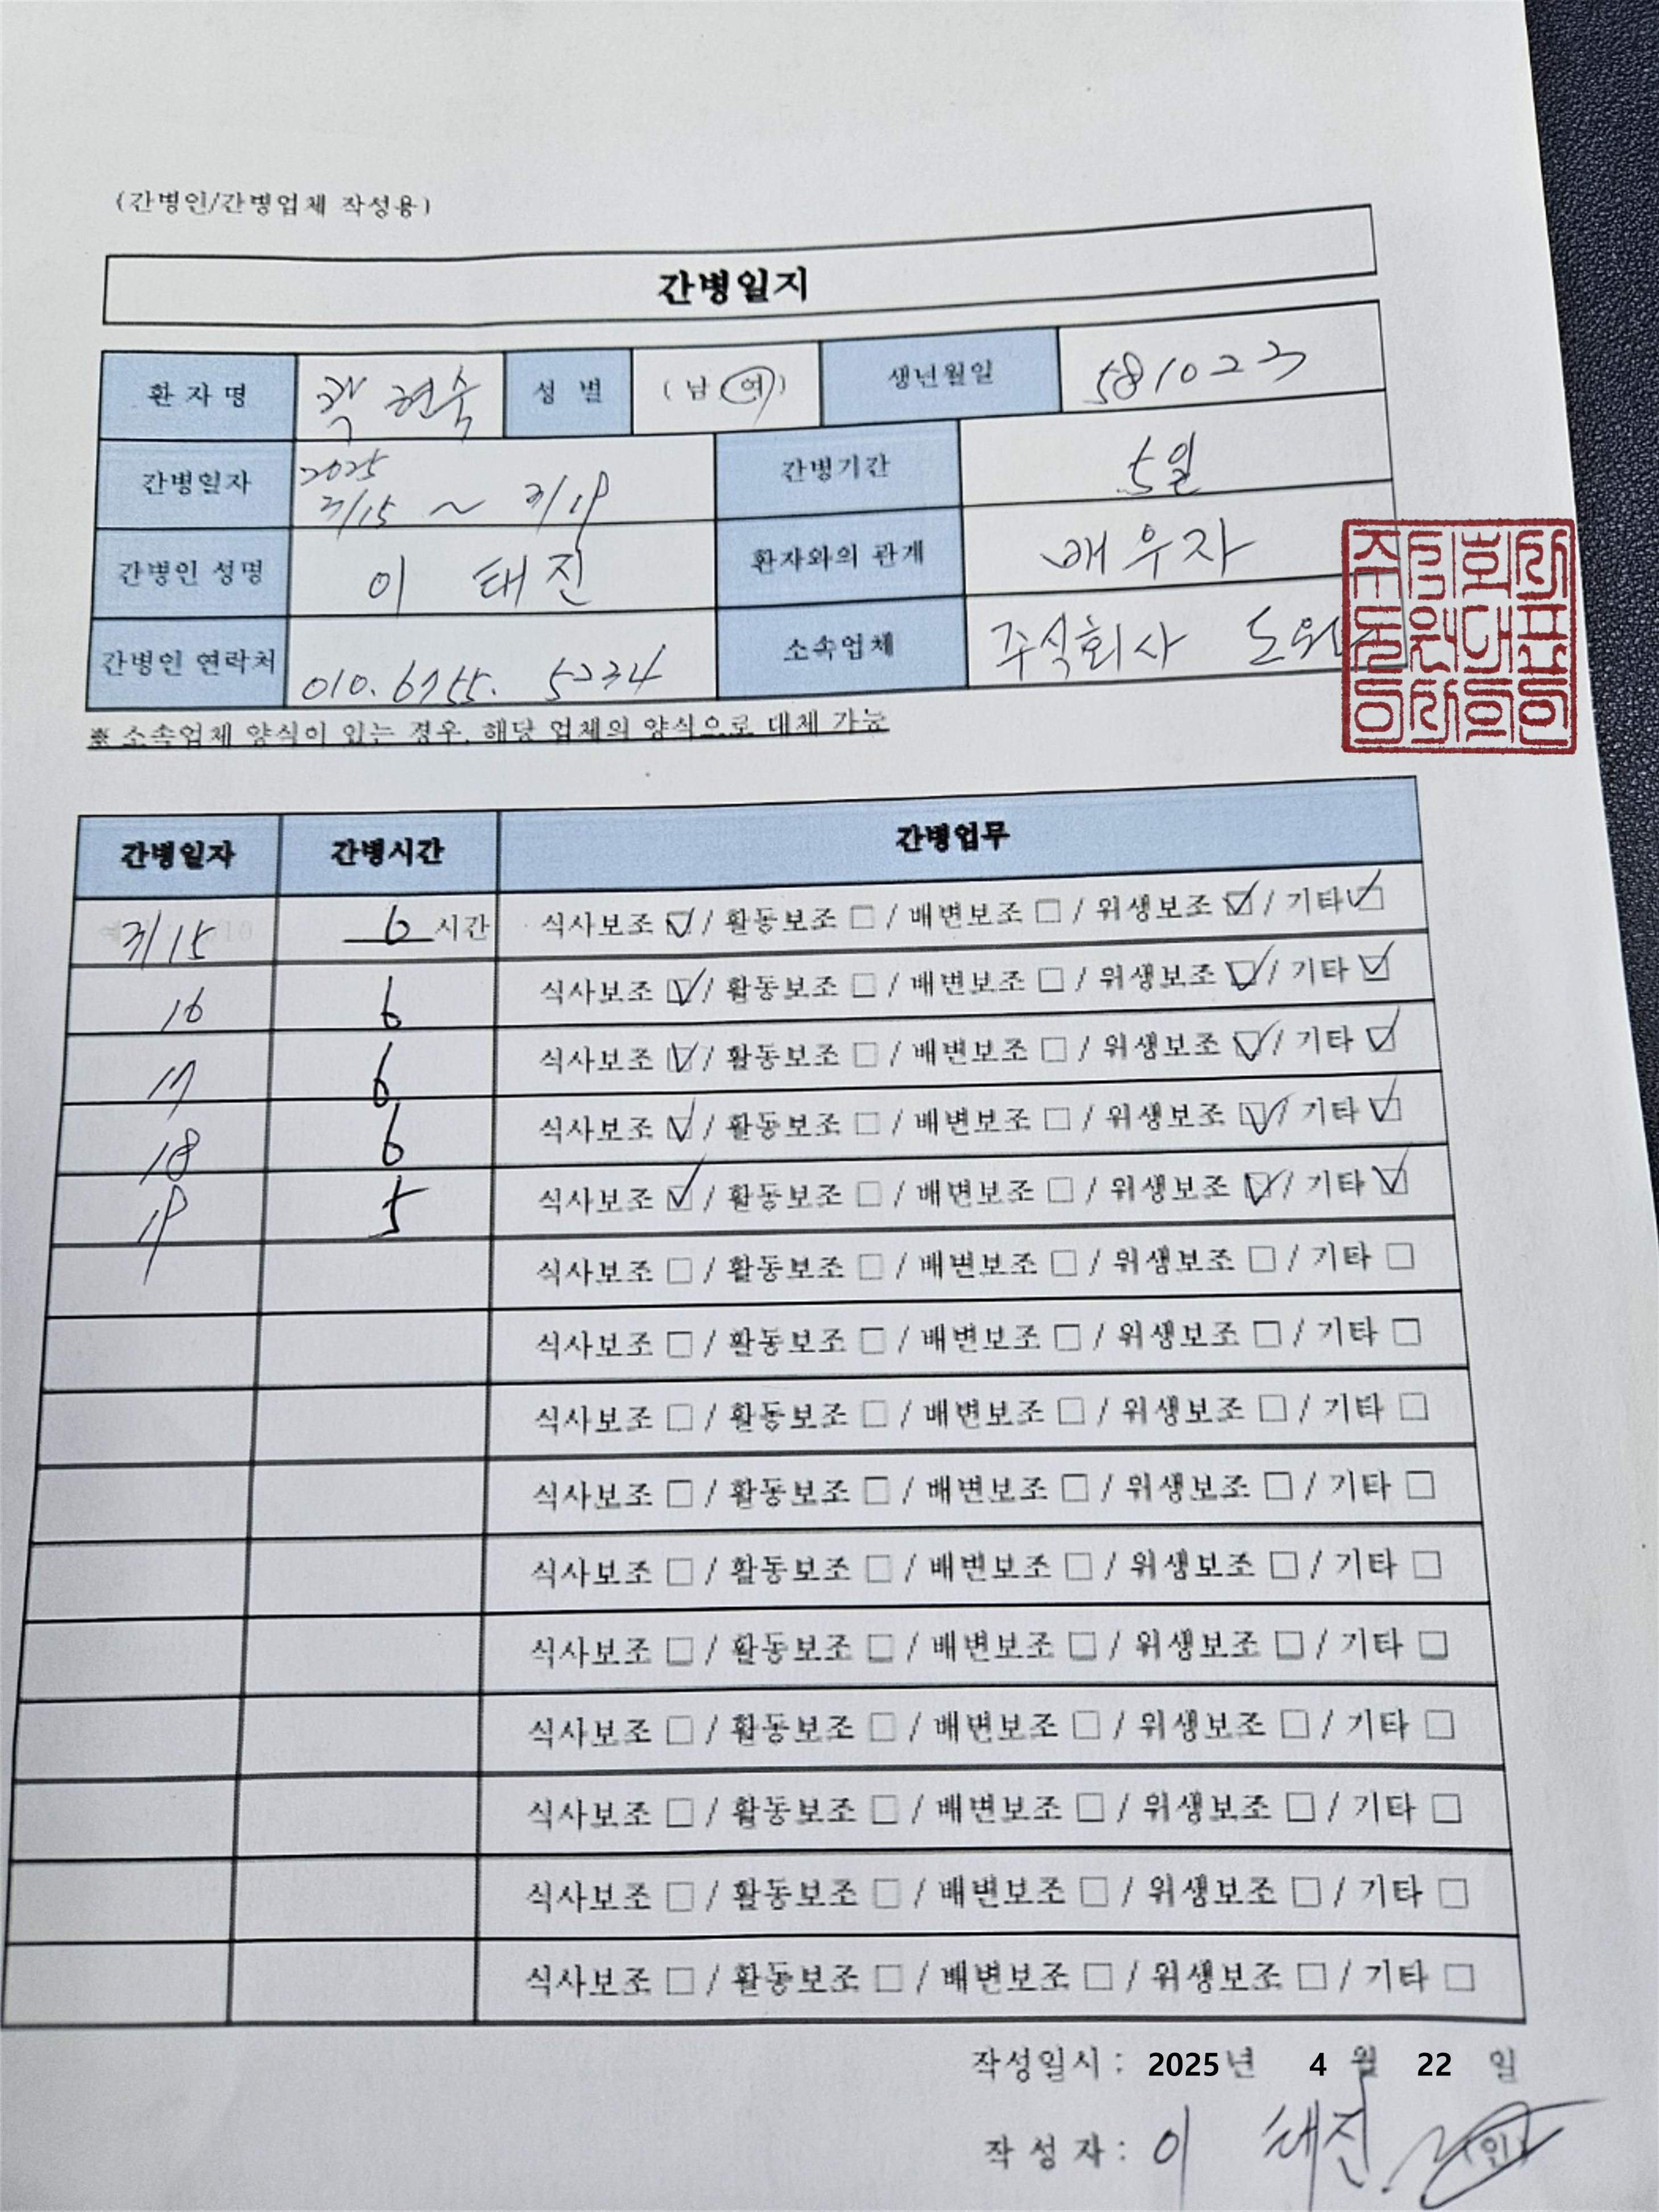 (간병인/간병업체 작성용)
간병일지
환 자 명 곽 현숙 성 별 ( 남 여 ) 생년월일 581023
간병일자 2025 3/15 ~ 3/19 간병기간 5일
간병인 성명 이 태진 환자와의 관계 배우자
간병인 연락처 010. 6755. 5234 소속업체 주식회사 도원
※ 소속업체 양식이 있는 경우, 해당 업체의 양식으로 대체 가능
간병일자 간병시간 간병업무
3/15 6 시간 식사보조 ☑ / 활동보조 □ / 배변보조 □ / 위생보조 ☑ / 기타 ☑
16 6 식사보조 ☑ / 활동보조 □ / 배변보조 □ / 위생보조 ☑ / 기타 ☑
17 6 식사보조 ☑ / 활동보조 □ / 배변보조 □ / 위생보조 ☑ / 기타 ☑
18 6 식사보조 ☑ / 활동보조 □ / 배변보조 □ / 위생보조 ☑ / 기타 ☑
19 5 식사보조 ☑ / 활동보조 □ / 배변보조 □ / 위생보조 ☑ / 기타 ☑
식사보조 □ / 활동보조 □ / 배변보조 □ / 위생보조 □ / 기타 □
식사보조 □ / 활동보조 □ / 배변보조 □ / 위생보조 □ / 기타 □
식사보조 □ / 활동보조 □ / 배변보조 □ / 위생보조 □ / 기타 □
식사보조 □ / 활동보조 □ / 배변보조 □ / 위생보조 □ / 기타 □
식사보조 □ / 활동보조 □ / 배변보조 □ / 위생보조 □ / 기타 □
식사보조 □ / 활동보조 □ / 배변보조 □ / 위생보조 □ / 기타 □
식사보조 □ / 활동보조 □ / 배변보조 □ / 위생보조 □ / 기타 □
식사보조 □ / 활동보조 □ / 배변보조 □ / 위생보조 □ / 기타 □
식사보조 □ / 활동보조 □ / 배변보조 □ / 위생보조 □ / 기타 □
식사보조 □ / 활동보조 □ / 배변보조 □ / 위생보조 □ / 기타 □
작성일시 : 2025년 4 월 22 일
작 성 자 : 이 태진 (인)